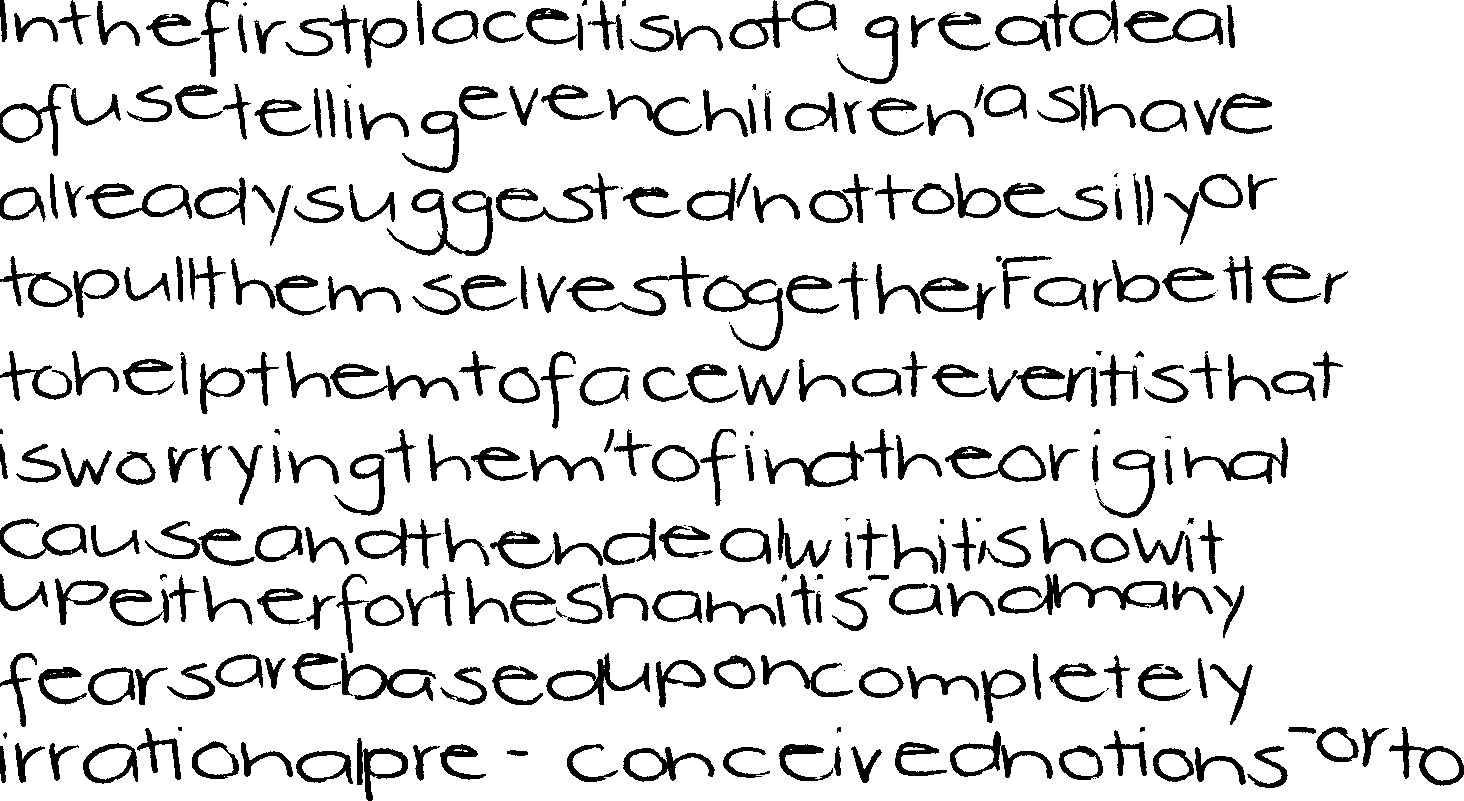 Inthefirstplaceitisnota greatdeal
ofusetellingevenchildren'asIhave
alreadysuggested'nottobesillyor
topullthemselvestogether.Farbetter
tohelpthemtofacewhateveritisthat
isworryingthem'tofindtheoriginal
causeandthendealwithit:showit
upeitherfortheshamitis-andmany
fearsarebaseduponcompletely
irrationalpre - conceivednotions-orto